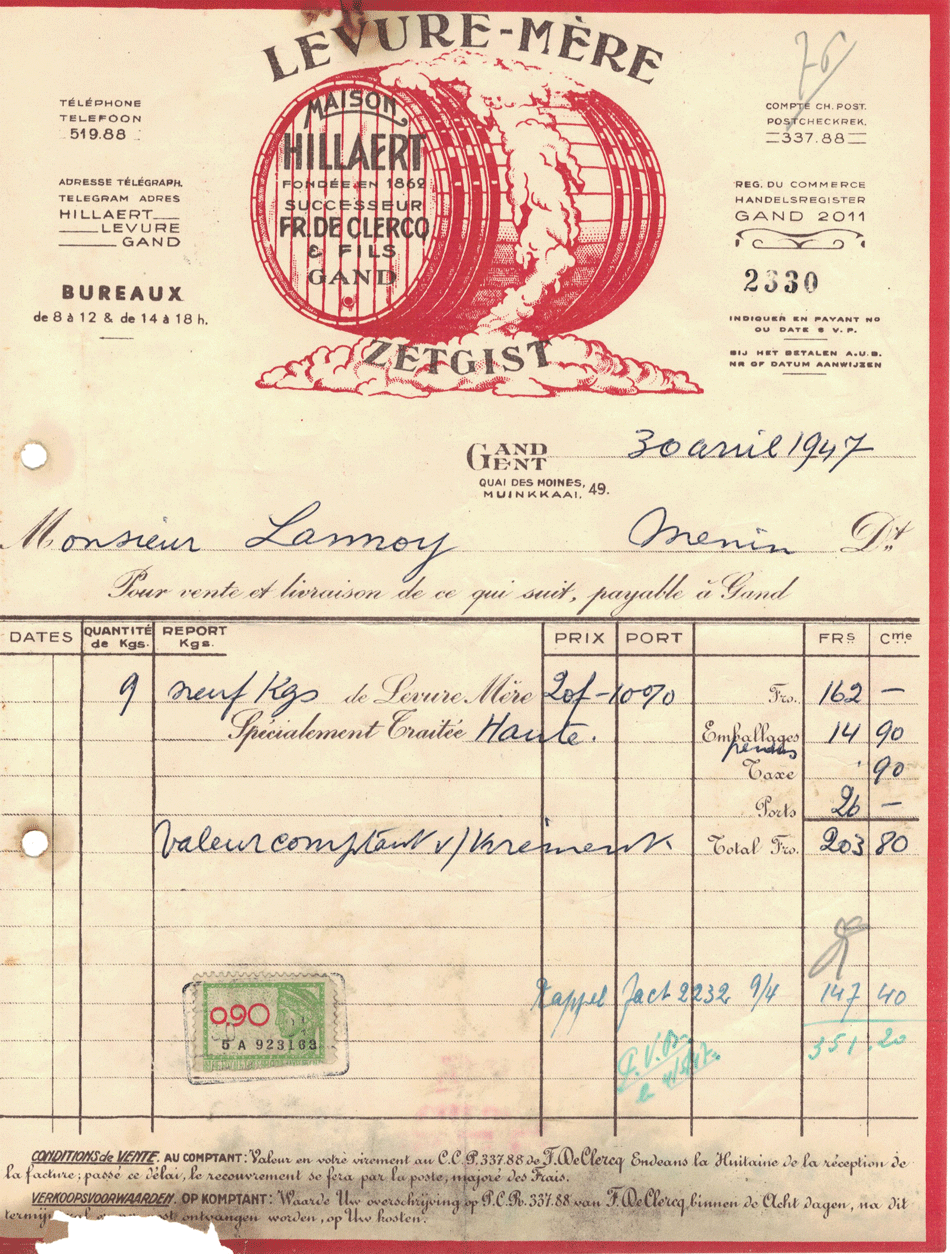 LEVURE-MÈRE
MAISON
HILLAERT
FONDÉE EN 1862
SUCCESSEUR
FR. DE CLERCQ
& FILS
GAND
ZETGIST
TÉLÉPHONE
TELEFOON
519.88
ADRESSE TÉLÉGRAPH.
TELEGRAM ADRES
HILLAERT
LEVURE
GAND
BUREAUX
de 8 à 12 & de 14 à 18 h.
76
COMPTE CH. POST.
POSTCHECKREK.
337.88
REG. DU COMMERCE
HANDELSREGISTER
GAND 2011
2330
INDIQUER EN PAYANT NO
OU DATE S V. P.
BIJ HET BETALEN A.U.B.
NR OF DATUM AANWIJZEN
GAND GENT 30 avril 1947
QUAI DES MOINES, MUINKKAAI, 49.
Monsieur Lannoy Menin Dt
Pour vente et livraison de ce qui suit, payable à Gand
DATES QUANTITÉ de Kgs. REPORT Kgs. PRIX PORT FRS Cme
9 neuf Kgs de Levure Mère 20f -10% Frs. 162 —
Spécialement Traitée Haute. Emballages 14 90
perdus
Taxe 90
Ports 26 —
Valeur comptant s/ virement Total Frs. 203 80
Rappel fact 2232 9/4 147 40
351.20
0,90
5 A 923163
CONDITIONS de VENTE. AU COMPTANT: Valeur en votre virement au C.C.P. 337.88 de F. De Clercq Endeans la Huitaine de la réception de
la facture; passé ce délai, le recouvrement se fera par la poste, majoré des Frais.
VERKOOPSVOORWAARDEN. OP KOMPTANT: Waarde Uw overschrijving op P.C.R. 337.88 van F. De Clercq, binnen de Acht dagen, na dit
ontvangen worden, op Uw kosten.